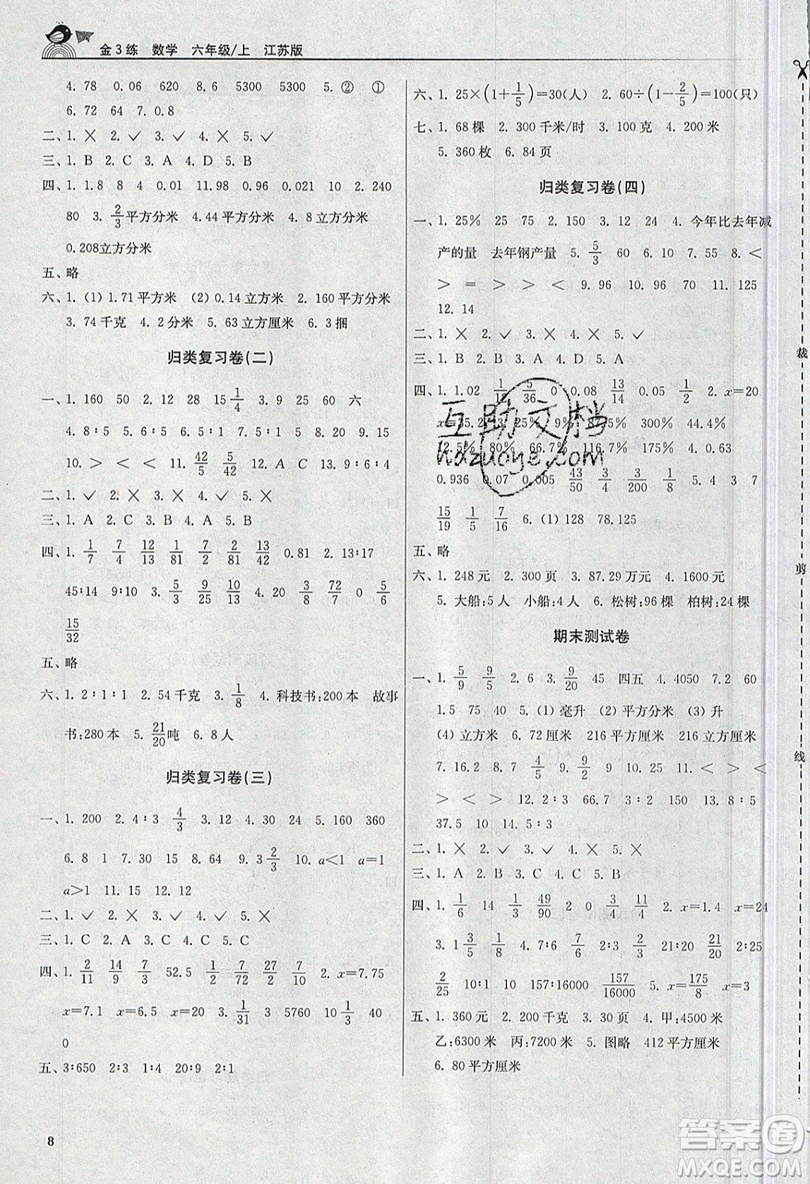 金3练 数学 六年级/上 江苏版
4. 78 0.06 628 6 5300 5300 5. ② ①
6. 72 64 7. 0.8
二、1. ✕ 2. ✓ 3. ✓ 4. ✕
三、1. B 2. C 3. A 4. D 5. A
四、1. 1.8 8 4 0.96 0.021 10 2. 240
80 3. 2/3平方分米 4. 44平方分米 4. 8立方分米
0.208立方分米
五、略
六、1. (1) 1.71平方米 (2) 0.14立方米 2. 160平方分米
3. 74千克 4. 2分米 5. 63立方厘米 6. 3捆
归类复习卷(二)
一、1. 160 50 2. 12 28 15 1/4 3. 25 60 六
4. 8∶5 5. 6∶5 6. 5∶1 7. 5∶1 8. 8 9. 15
10. > < < 11. 42/5 5/42 12. A C 13. 9∶6∶4
二、1. ✓ 2. ✓ 3. ✕ 4. ✕ 5. ✕
三、1. A 2. C 3. A 4. B 5. A
四、1. 1/7 4/7 13/14 21/32 12/7 13/42 0.81 2. 13∶17
45∶14 9∶10 3. 5/3 9/25 10/9 3/8 4. 3/10 5/72
15/32
五、略
六、1. 2∶1∶1 2. 54千克 3. 1/8 4. 科技书:200本 故事
书:280本 5. 21/20吨 6. 8人
归类复习卷(三)
一、1. 200 2. 4∶3 4/3 3. 12 30 24 4. 50 5. 160 360
6. 8 1 7. 60 40 8. 32 9. 3 2/3 10. a<1 a=1
a>1 11. 15 12. 12
二、1. ✓ 2. ✓ 3. ✓ 4. ✓ 5. ✕
三、1. C 2. B 3. A 4. C 5. C
四、1. 2/11 10/9 13/7 52.5 1/2 7/72 28 2. x=7.75
x=7.1 x=6.5 x=20 3. 1/31 3 10 1/3 40
0
五、3∶650 2∶3 1∶2 9∶20 14∶9
六、1. 25×(1+1/5)=30(人) 2. 60÷(1-2/5)=100(只)
七、1. 68棵 2. 300千米/时 3. 100克 4. 200米
5. 360枚 6. 84页
归类复习卷(四)
一、1. 25% 25 75 2. 150 3. 12 24 4. 今年比去年减
产的量 去年钢产量 5. 5/3 60 6. 10 7. 2 8. < <
> = = < 9. 165 110 10. 975 11. 3000
12. 14
二、1. ✕ 2. ✓ 3. ✕ 4. ✓ 5. ✓
三、1. B 2. B 3. A 4. D 5. D
四、1. 1.02 1/12 5/36 0 0.08 13/14 0.05 1/2 2. x=20
x=35.2 x=36 3. 25% 9% 87.5% 300% 44.4%
12.5% 80% 66.7% 112.5% 146.7% 175% 4. 0.63
0.936 0.07 0.425 43/50 3/4 31/250 5. 4 3 7
15/19 1/15 7/16 6. (1) 128 78.125
五、略
六、1. 248元 2. 300页 3. 87.29万元 4. 1600元
5. 大船:5人 小船:4人 6. 松树:96棵 柏树:24棵
期末测试卷
一、1. 5/9 9/5 2. 6 3. 9/20 45 四五 4. 4050 7.2 60
1.5 75 40 5. (1) 毫升 (2) 平方分米 (3) 升
(4) 立方米 6. 72厘米 216平方厘米 216立方厘米
7. 16.2 8. 4/5 9. 5/9 4/9 10. 17 9 11. > <
> < > 12. 2∶3 66.7 13. 0.3 14. 80
37.5 10.5∶3
二、1. ✕ 2. ✕ 3. ✓ 4. ✕ 5. ✓
三、1. B 2. A 3. C 4. C 5. A
四、1. 1/6 14 49/90 2 0 3/4 11/4 2. x=1.4 x=24
3. 1 3/5 1/2 4. 7∶6 2∶3 5/4 25/8 x=4/9 x=175/8
2/25 10∶1 157∶16000 157/16000
五、1. 360元 2. 200千克 3. 30页 4. 甲:4500米
乙:6300米 丙:7200米 5. 图略 412平方厘米
6. 80平方厘米
裁
剪
线
互助文档
hdzuoye.com
8
答案圈
MXQE.COM